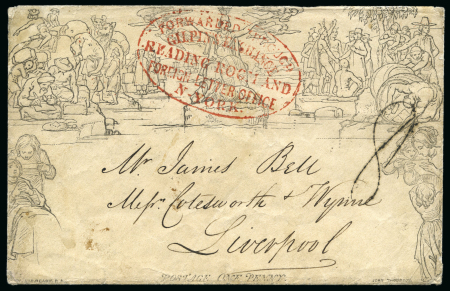 FORWARDED THROUGH
GILPIN'S EXCHANGE
READING ROOM AND
FOREIGN LETTER OFFICE
N. YORK
8
Mr James Bell
Messrs Cotesworth & Wynne
Liverpool
POSTAGE ONE PENNY